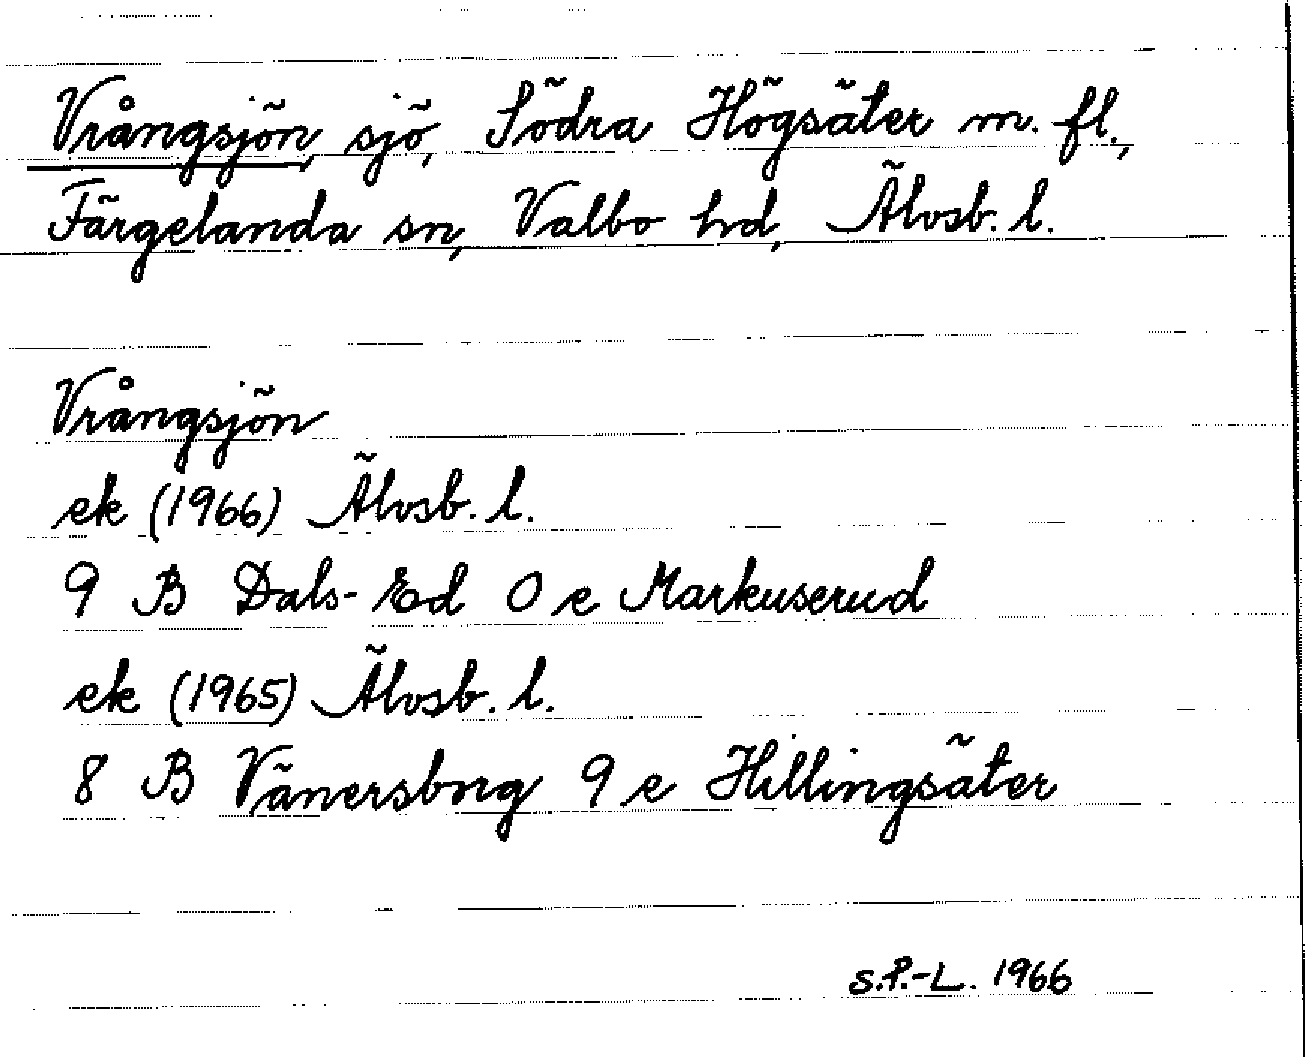 Vrångsjön, sjö, Södra Högsäter m. fl.,
Färgelanda sn, Valbo hd, Älvsb. l.
Vrångsjön
ek (1966) Älvsb. l.
9 B Dals-Ed 0 e Markuserud
ek (1965) Älvsb. l.
8 B Vänersborg 9 e Hillingsäter
S.P.-L. 1966